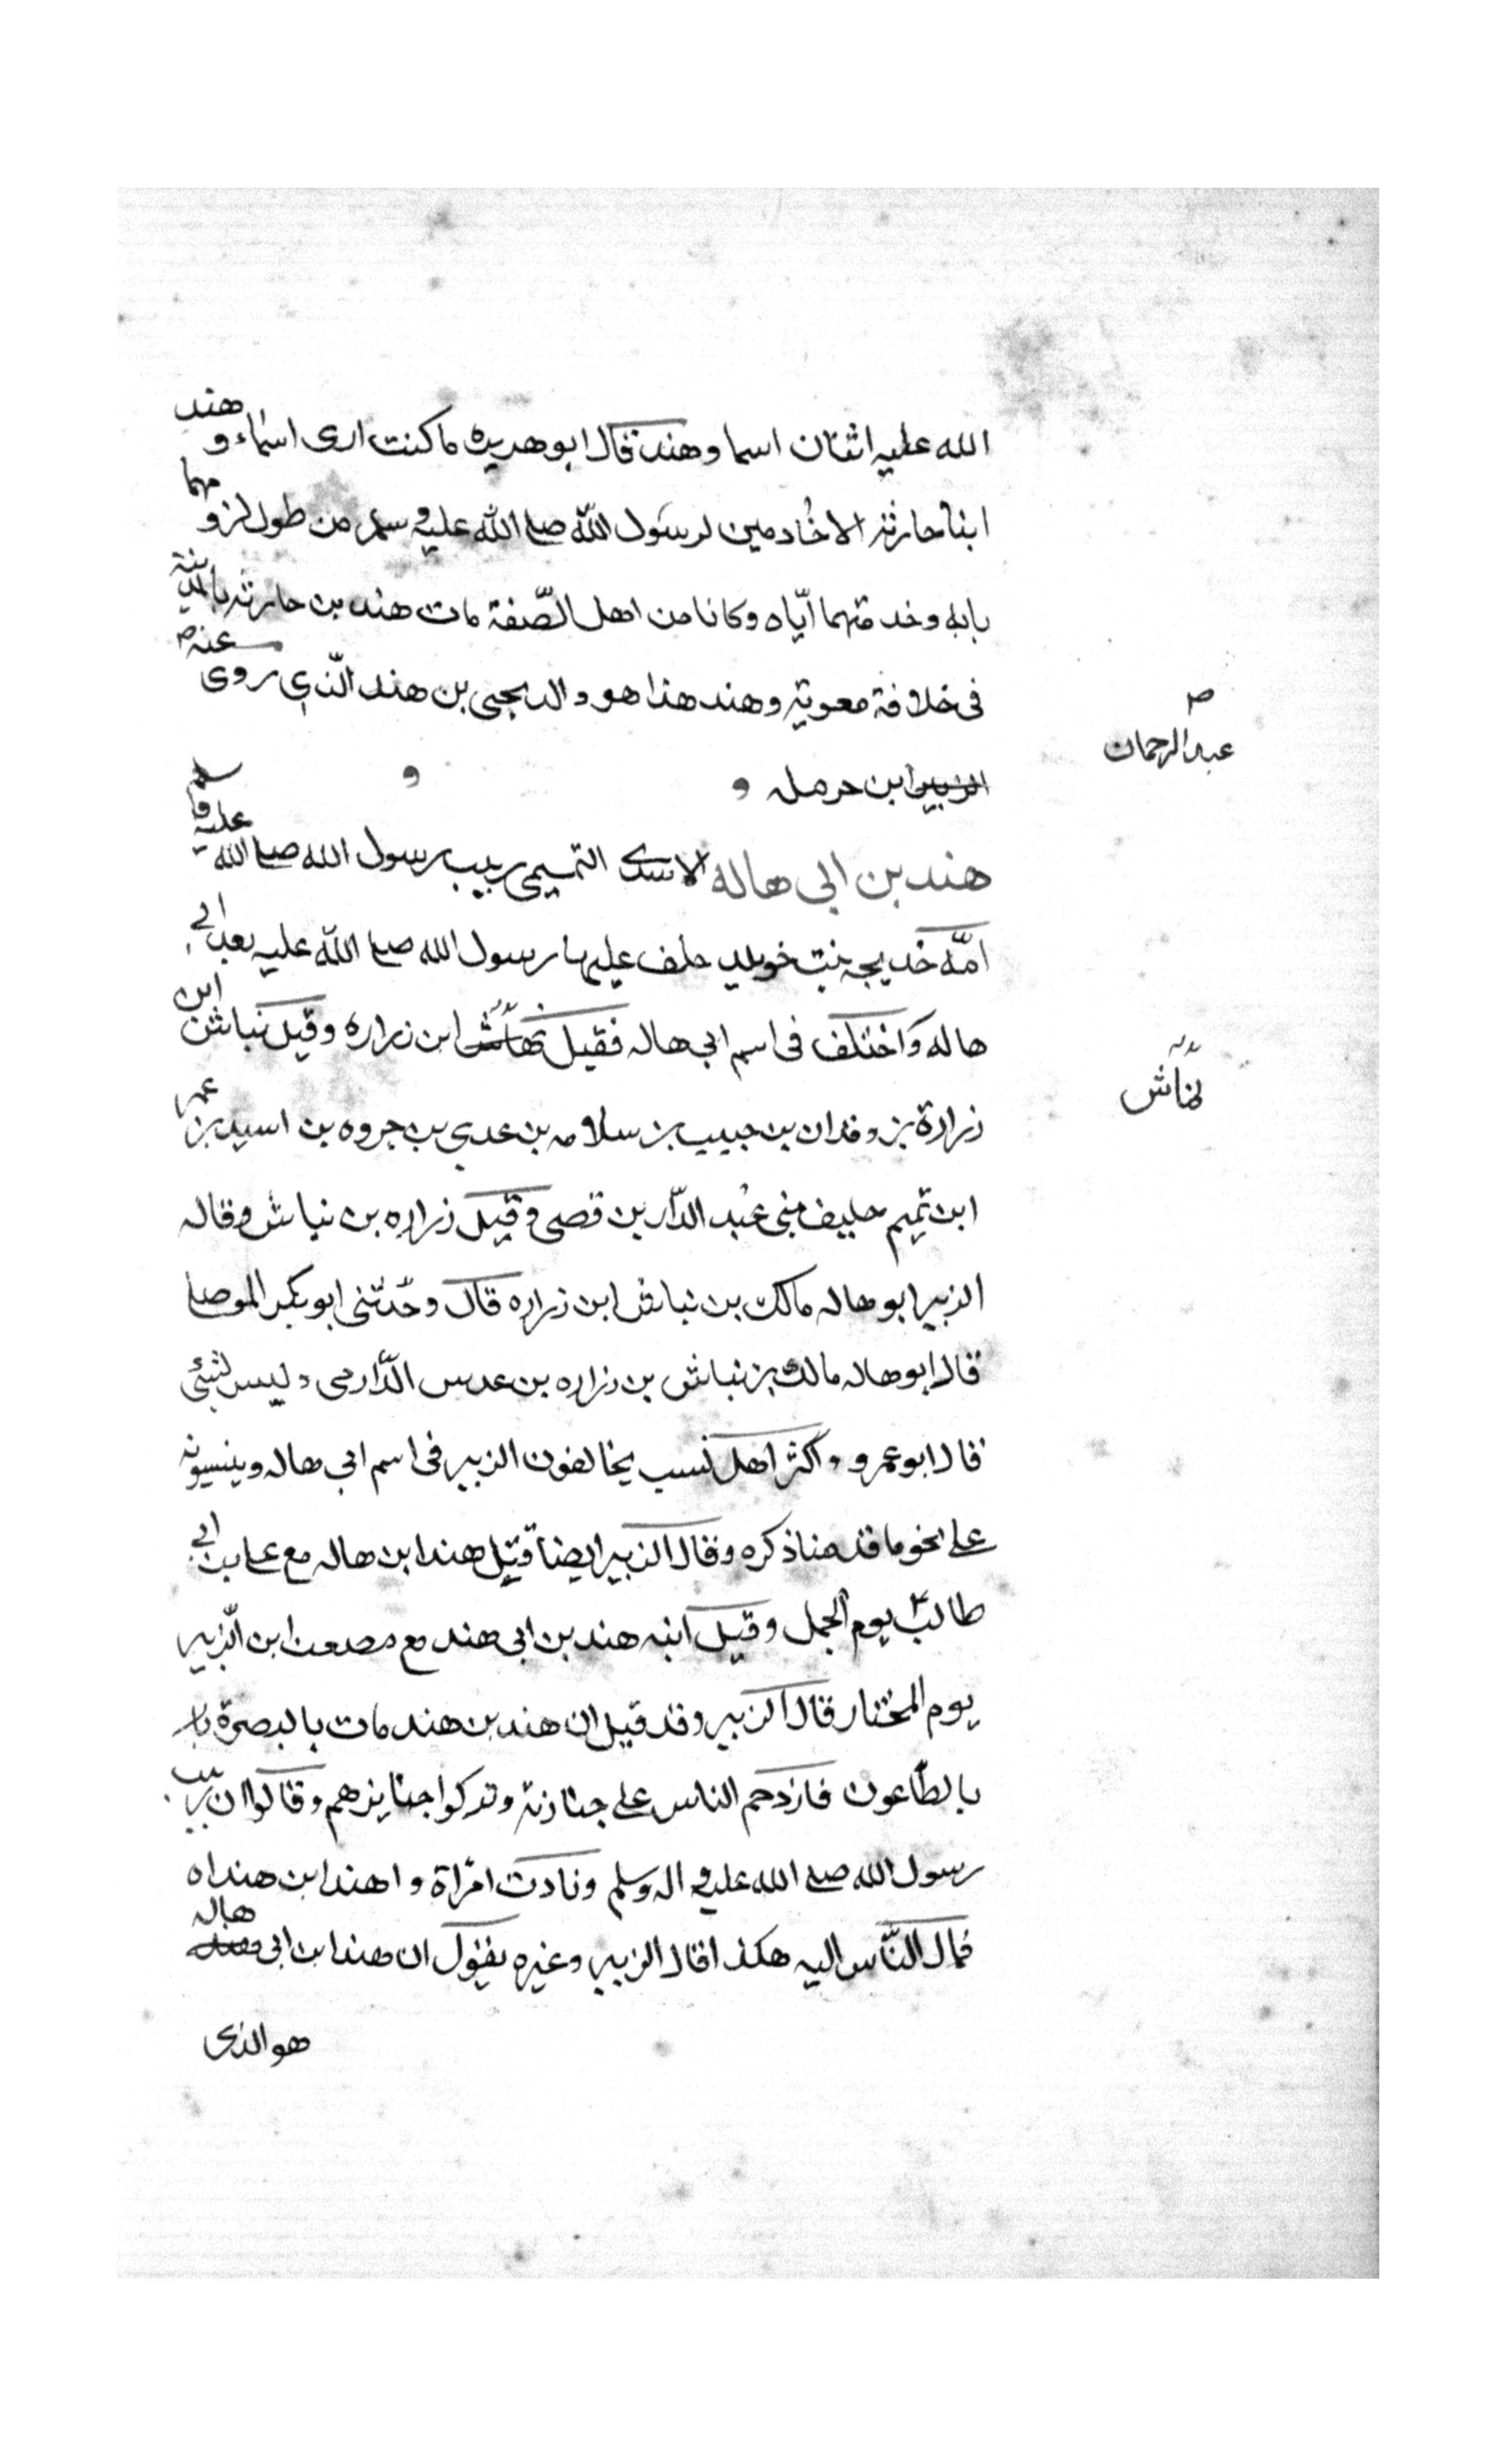 الله عليه اثنان اسما وهند قال ابو هريره ما كنت ارى اسماء و هند
ابنا حارثه الا خادمين لرسول الله صلى الله عليه وسلم من طول لزومهما
بابه وخدمتهما اياه وكانا من اهل الصّفة مات هند بن حارثه بالمدينة
فى خلافة معوية وهند هذا هو والد يحيى بن هند الّذي روى عنه
عبد الرحمان
ابن حرمله و و
هند بن ابى هاله الاسدى التميمى ربيب رسول الله صلى الله عليه وسلم
امّه خديجه بنت خويلد خلف عليها رسول الله صلى الله عليه بعد ابي
هاله واختلف فى اسم ابى هاله فقيل نماش ابن زراره وقيل نباش ابن
نماش
زرارة بن وقدان بن حبيب بن سلامه بن عدي بن جروه بن اسيد بن عمر
ابن تميم حليف بنى عبد الدّار بن قصى وقيل زراره بن نباش وقال
الزبير ابو هاله مالك بن نباش ابن زراره قال وحدّثنى ابو بكر الموصلى
قال ابو هاله مالك بن نباش بن زراره بن عدس الدّارمى وليس بشئ
قال ابو عمرو واكثر اهل نسب يخالفون الزبير فى اسم ابى هاله وينسبونه
على نحو ما قدمنا ذكره وقال الزبير ايضا قتل هند ابن هاله مع على بن ابي
طالب يوم الجمل وقيل ابنه هند بن ابى هند مع مصعب ابن الزّبير
يوم المختار قال الزبير وقد قيل ان هند بن هند مات بالبصرة
بالطّاعون فازدحم الناس على جنازته وتركوا جنايزهم وقالوا ابن ربيب
رسول الله صلى الله عليه واله وسلم ونادت امراة واهند ابن هنداه
فمال النّاس اليه هكذا قال الزبير وغيره يقول ان هند ابن ابى هاله
هو الذى